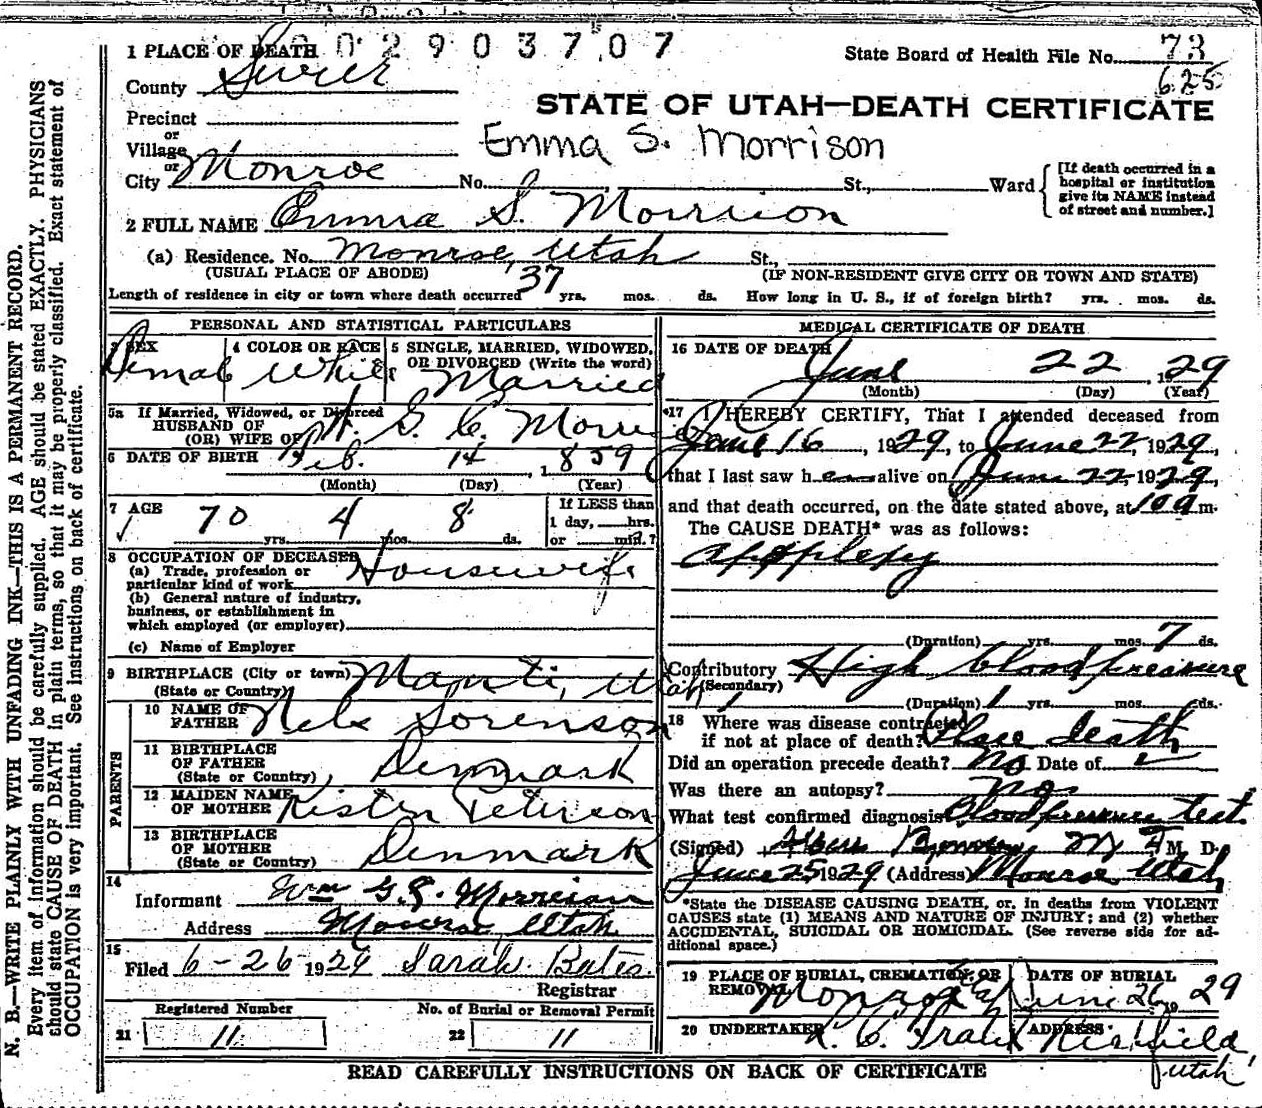 0 0 2 9 0 3 7 0 7
1 PLACE OF DEATH
State Board of Health File No. 73
625
County Sevier
STATE OF UTAH—DEATH CERTIFICATE
Precinct
or
Village
Emma S. Morrison
or
City Monroe No. St., Ward
[If death occurred in a
hospital or institution
give its NAME instead
of street and number.]
2 FULL NAME Emma S. Morrison
(a) Residence. No. Monroe, Utah St.,
(USUAL PLACE OF ABODE) (IF NON-RESIDENT GIVE CITY OR TOWN AND STATE)
Length of residence in city or town where death occurred 37 yrs. mos. ds. How long in U. S., if of foreign birth? yrs. mos. ds.
PERSONAL AND STATISTICAL PARTICULARS
3 SEX 4 COLOR OR RACE 5 SINGLE, MARRIED, WIDOWED,
OR DIVORCED (Write the word)
Female White Married
5a If Married, Widowed, or Divorced
HUSBAND OF
(OR) WIFE OF
6 DATE OF BIRTH Feb. 14, 1859
(Month) (Day) (Year)
7 AGE
If LESS than
1 day, hrs.
or min.?
70 yrs. 4 mos. 8 ds.
8 OCCUPATION OF DECEASED
(a) Trade, profession or
particular kind of work Housewife
(b) General nature of industry,
business, or establishment in
which employed (or employer)
(c) Name of Employer
9 BIRTHPLACE (City or town) Manti, Utah
(State or Country)
PARENTS
10 NAME OF
FATHER Nels Sorenson
11 BIRTHPLACE
OF FATHER
(State or Country) Denmark
12 MAIDEN NAME
OF MOTHER Kisten Peterson
13 BIRTHPLACE
OF MOTHER
(State or Country) Denmark
14
Informant Wm G.S. Morrison
Address Monroe, Utah
15
Filed 6-26 1929 Sarah Bates
Registrar
Registered Number No. of Burial or Removal Permit
21 11 22 11
MEDICAL CERTIFICATE OF DEATH
16 DATE OF DEATH
June 22, 1929
(Month) (Day) (Year)
*17 I HEREBY CERTIFY, That I attended deceased from
June 16, 1929, to June 22, 1929,
that I last saw her alive on June 22, 1929,
and that death occurred, on the date stated above, at 10 a m.
The CAUSE DEATH* was as follows:
Appoplexy
(Duration) yrs. mos. 7 ds.
Contributory High blood pressure
(Secondary)
(Duration) 1 yrs. mos. ds.
18 Where was disease contracted
if not at place of death? Place death
Did an operation precede death? No Date of
Was there an autopsy? No
What test confirmed diagnosis Blood pressure test.
(Signed) M. D.
June 25 1929 (Address) Monroe Utah
*State the DISEASE CAUSING DEATH, or, in deaths from VIOLENT
CAUSES state (1) MEANS AND NATURE OF INJURY; and (2) whether
ACCIDENTAL, SUICIDAL OR HOMICIDAL. (See reverse side for ad-
ditional space.)
19 PLACE OF BURIAL, CREMATION, OR
REMOVAL Monroe
DATE OF BURIAL
June 26 1929
20 UNDERTAKER
ADDRESS
Richfield,
Utah
READ CAREFULLY INSTRUCTIONS ON BACK OF CERTIFICATE
N. B.—WRITE PLAINLY WITH UNFADING INK—THIS IS A PERMANENT RECORD.
Every item of information should be carefully supplied. AGE should be stated EXACTLY. PHYSICIANS
should state CAUSE OF DEATH in plain terms, so that it may be properly classified. Exact statement of
OCCUPATION is very important. See instructions on back of certificate.